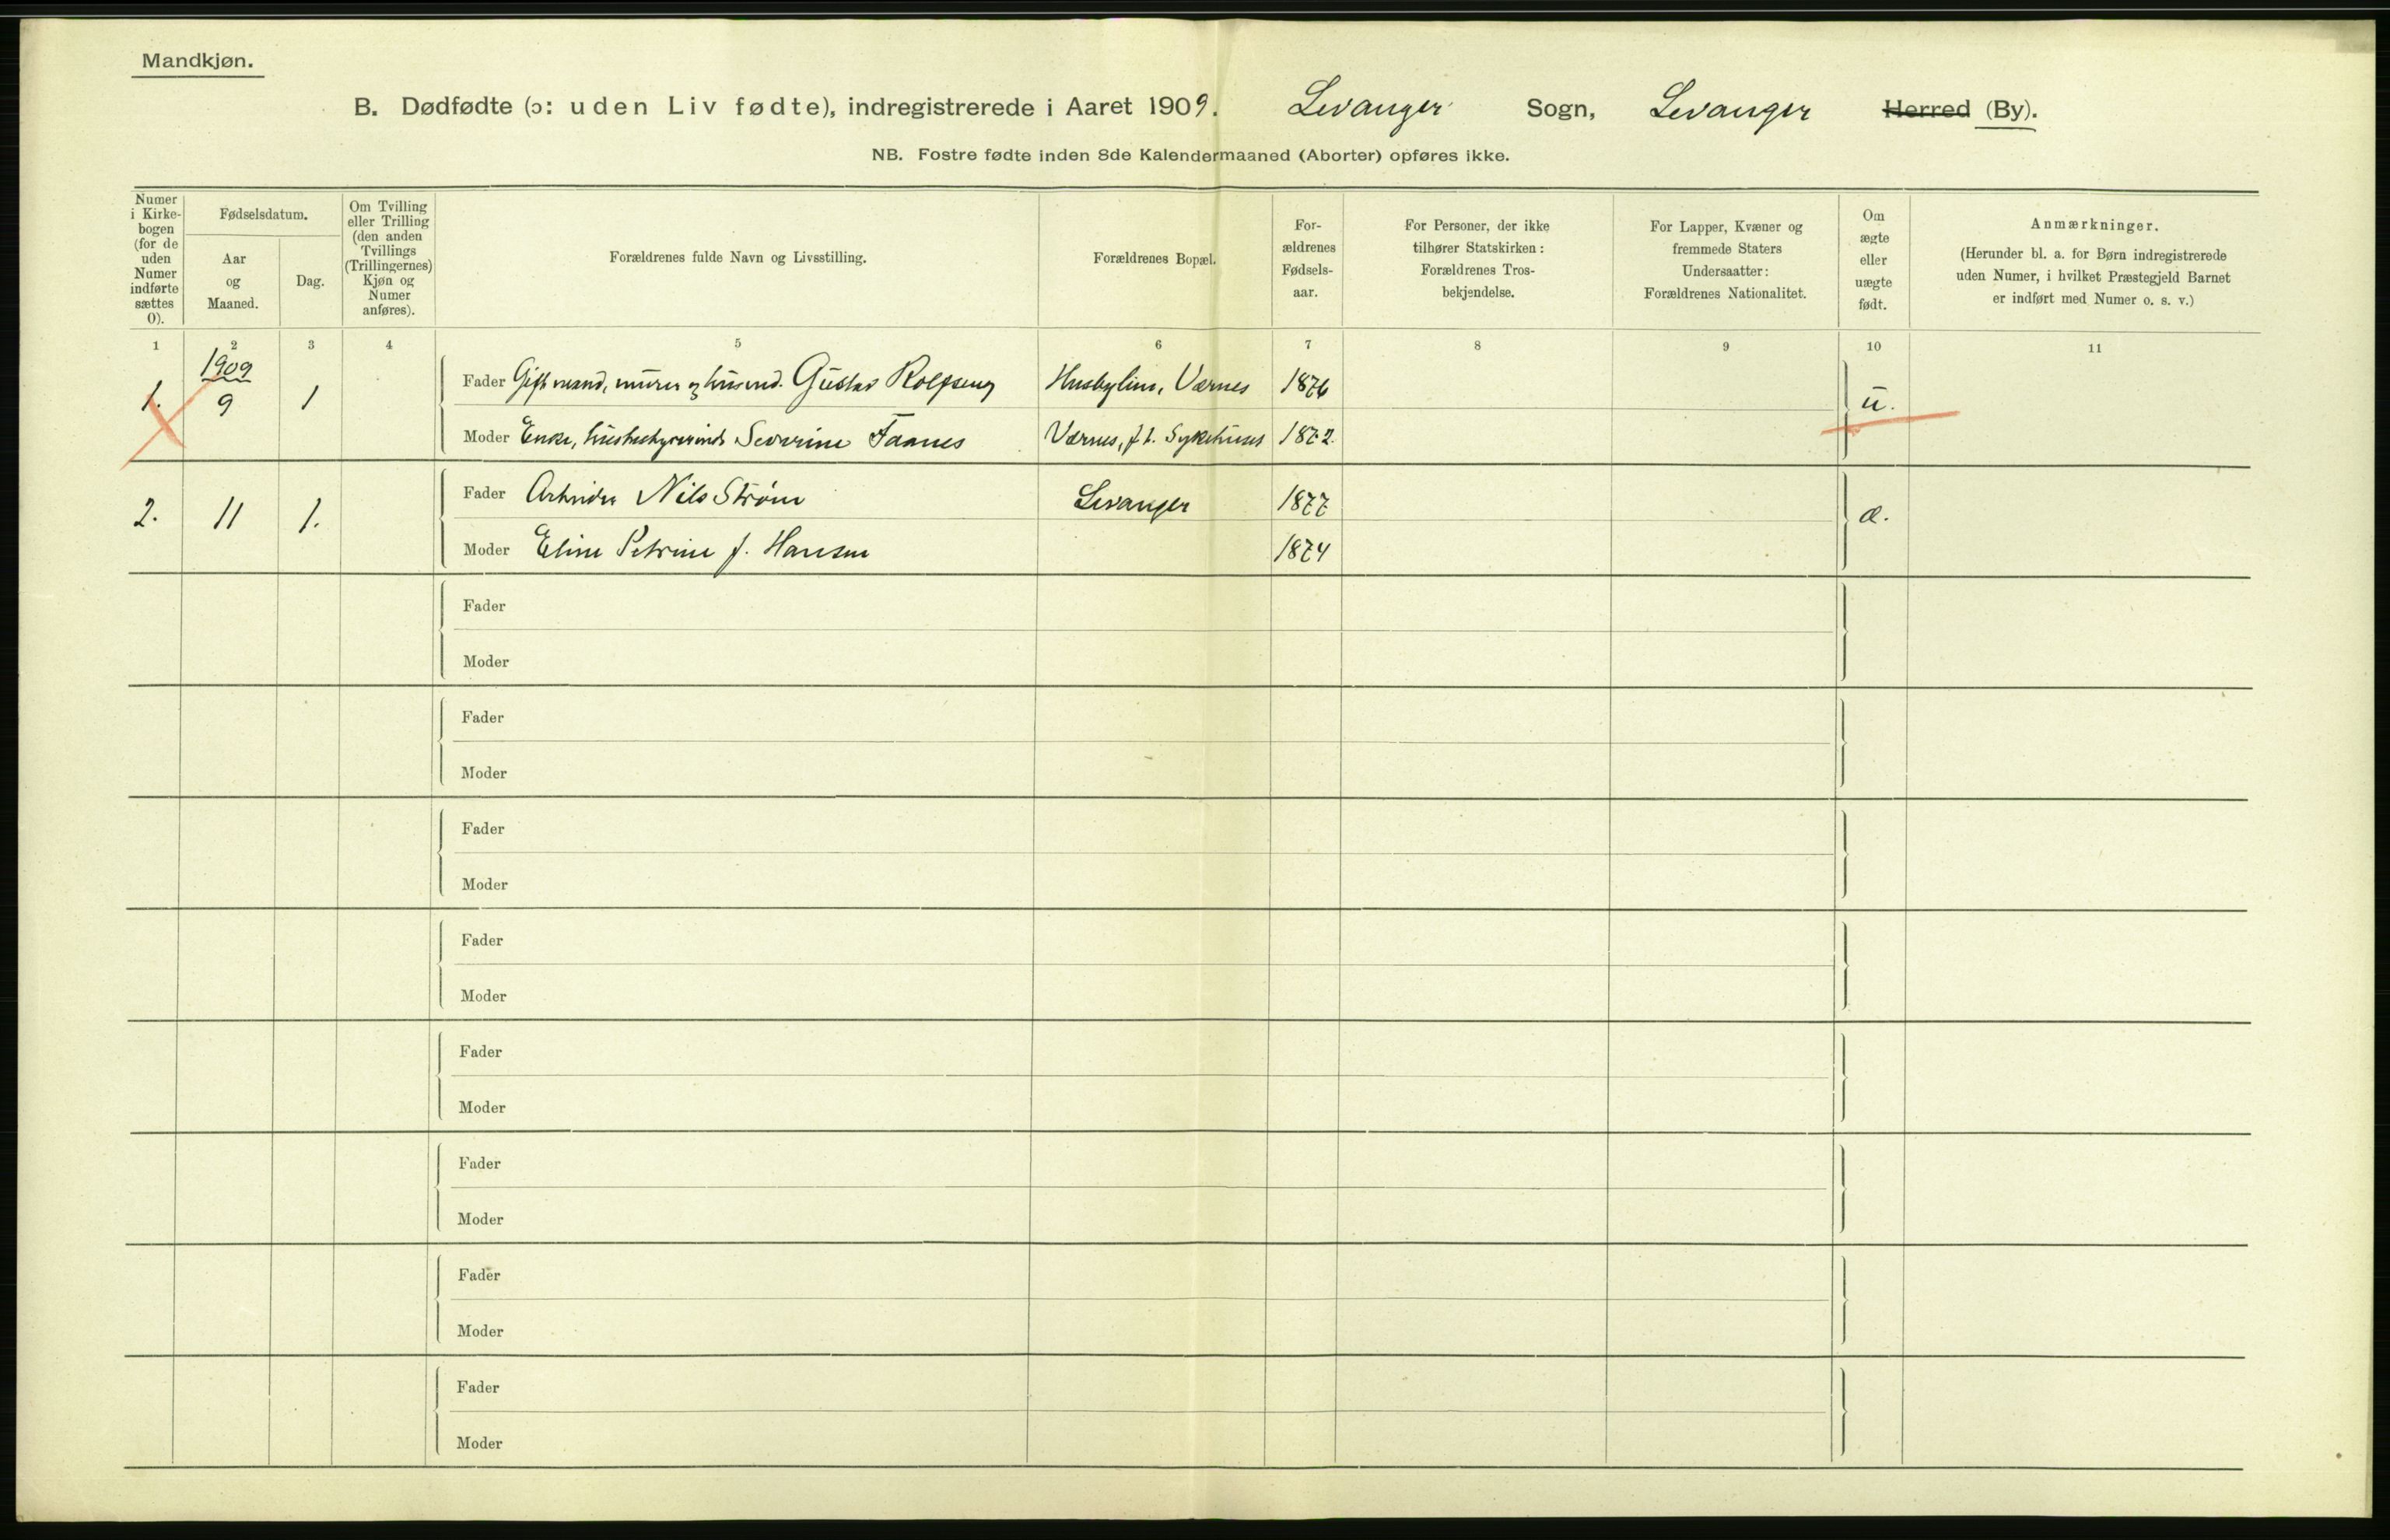 Mandkjøn.
B. Dødfødte (ɔ: uden Liv fødte), indregistrerede i Aaret 1909. Levanger Sogn, Levanger Herred (By).
NB. Fostre fødte inden 8de Kalendermaaned (Aborter) opføres ikke.
Numer i Kirke-bogen (for de uden Numer indførte sættes 0).
Fødselsdatum.
Aar og Maaned.
Dag.
Om Tvilling eller Trilling (den anden Tvillings (Trillingernes) Kjøn og Numer anføres).
Forældrenes fulde Navn og Livsstilling.
Forældrenes Bopæl.
For-ældrenes Fødsels-aar.
For Personer, der ikke tilhører Statskirken: Forældrenes Tros-bekjendelse.
For Lapper, Kvæner og fremmede Staters Undersaatter: Forældrenes Nationalitet.
Om ægte eller uægte født.
Anmærkninger.
(Herunder bl. a. for Børn indregistrerede uden Numer, i hvilket Præstegjeld Barnet er indført med Numer o. s. v.)
1 2 3 4 5 6 7 8 9 10 11
1909
1. 9 1 Fader Gift mand, murer og husmd. Gustav Rolfseng Husbylun, Værnes 1876 u.
Moder Enke, husbestyrerinde Severine Faanes Værnes, f. t. Sykehuset 1872.
2. 11 1. Fader Arbeider Nils Strøm Levanger 1877 æ.
Moder Eline Petrine f. Hansen 1874
Fader
Moder
Fader
Moder
Fader
Moder
Fader
Moder
Fader
Moder
Fader
Moder
Fader
Moder
Fader
Moder